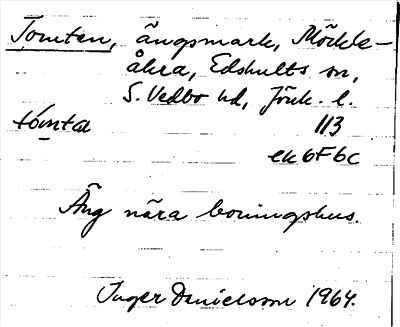 Tomten, ängsmark, Möckle-
åkra, Edshults sn,
S. Vedbo hd, Jönk. l.
tómta 113
ek 6F6c
Äng nära boningshus.
Inger Danielsson 1964.